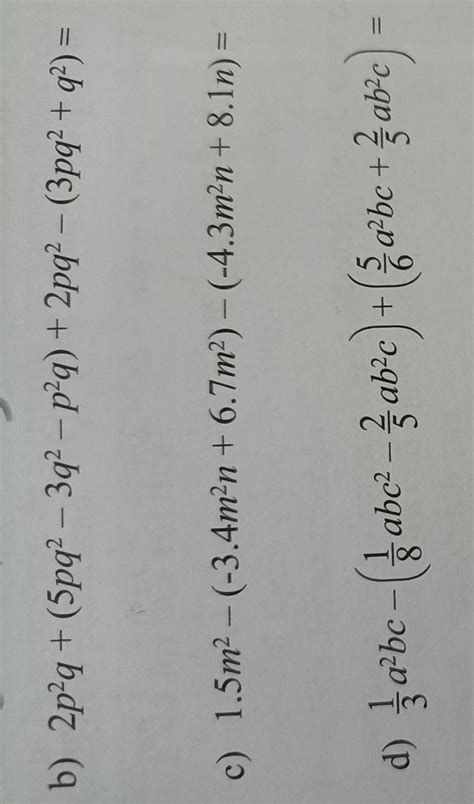 b) 2p²q + (5pq² – 3q² – p²q) + 2pq² – (3pq² + q²) =
c) 1.5m² – (-3.4m²n + 6.7m²) – (-4.3m²n + 8.1n) =
d) 1/3 a²bc – (1/8 abc² – 2/5 ab²c) + (5/6 a²bc + 2/5 ab²c) =